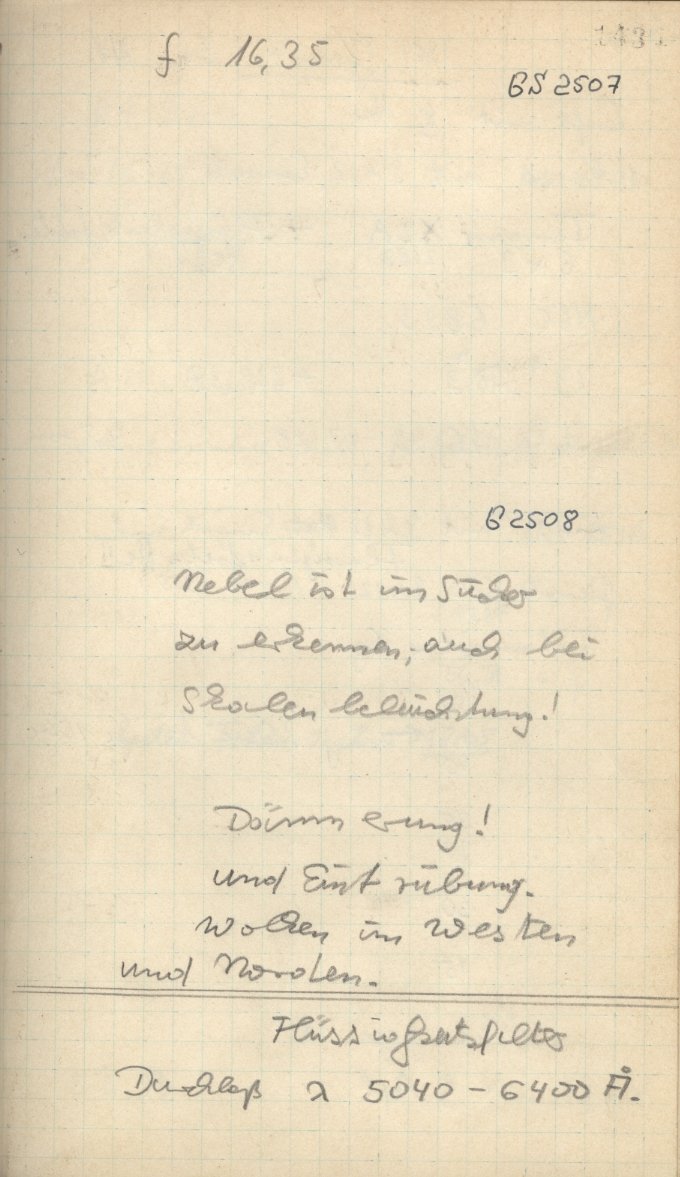 f 16,35
GS 2507
G 2508
Nebel ist im Sucher
zu erkennen, auch bei
Skalenbeleuchtung!
Dämmerung!
und Eintrübung.
Wolken im Westen
und Norden.
Flüssigkeitsfilter
Durchlaß λ 5040 – 6400 Å.